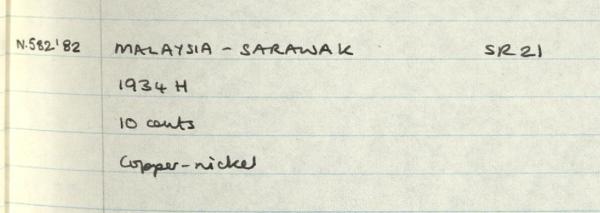 N.582'82 MALAYSIA - SARAWAK SR 21
1934 H
10 cents
Copper-nickel